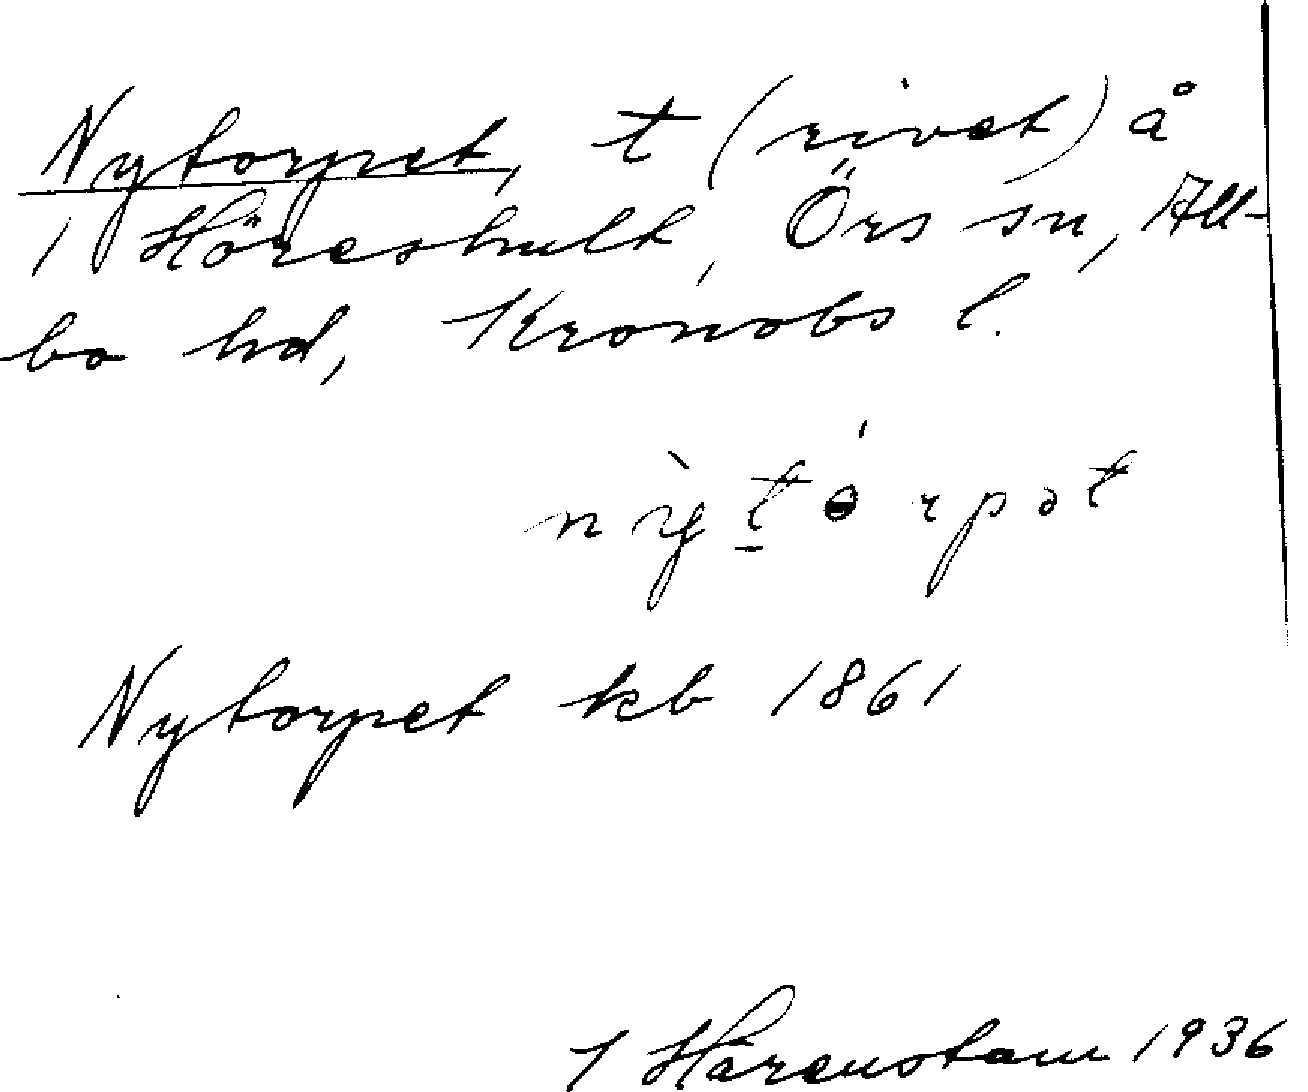 Nytorpet, t (rivet) å
1 Höreshult, Örs sn, All-
bo hd, Kronobs l.
nỳtɵ́rpət
Nytorpet kb 1861
1936